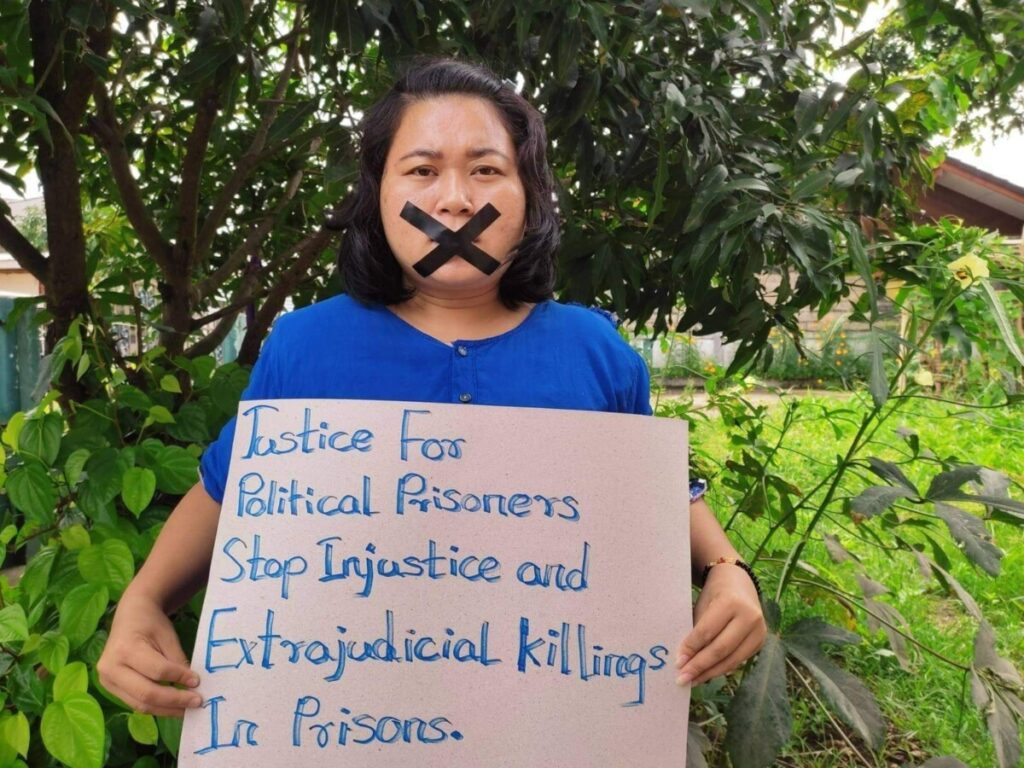 Justice For
Political Prisoners
Stop Injustice and
Extrajudicial killings
In Prisons.